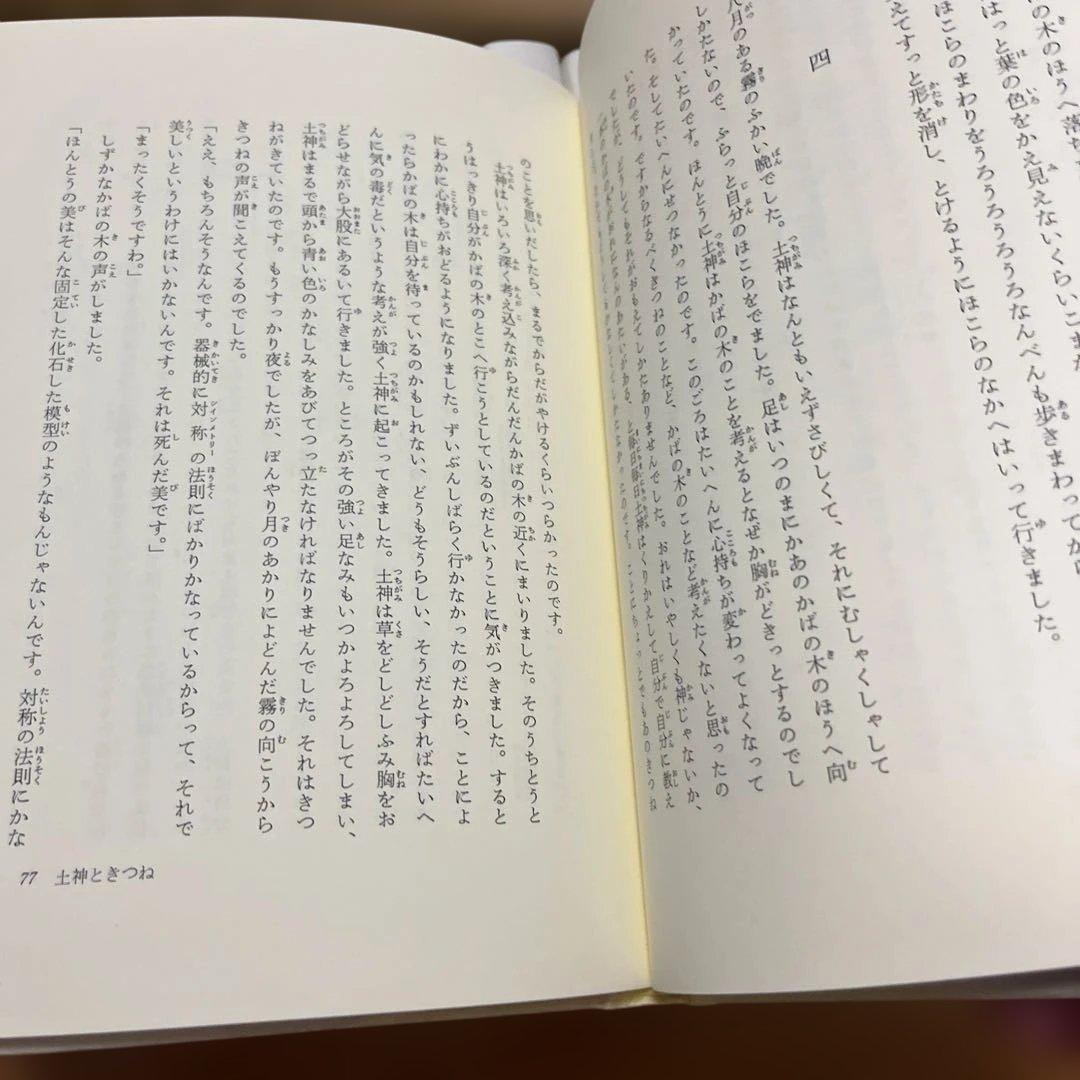 の木のほうへ落ち
はっと葉の色をかえ見えないくらいこまか
ほこらのまわりをうろうろうろうろなんべんも歩きまわってから
えてすっと形を消し、とけるようにほこらのなかへはいって行きました。
四
八月のある霧のふかい晩でした。土神はなんともいえずさびしくて、それにむしゃくしゃして
しかたないので、ふらっと自分のほこらをでました。足はいつのまにかあのかばの木のほうへ向
かっていたのです。ほんとうに土神はかばの木のことを考えるとなぜか胸がどきっとするのでし
た。そしてたいへんにせつなかったのです。このごろはたいへんに心持ちが変わってよくなって
いたのです。ですからなるべくきつねのことなど、かばの木のことなど考えたくないと思ったの
でしたが、どうしてもそれがおもえてしかたありませんでした。おれはいやしくも神じゃないか、
一本のかばの木がなんのあたいがある、と毎日毎日土神はくりかえして自分で自分に教え
なかったのです。ことにちょっとでもあのきつね
のことを思いだしたら、まるでからだがやけるくらいつらかったのです。
土神はいろいろ深く考え込みながらだんだんかばの木の近くにまいりました。そのうちとうと
うはっきり自分がかばの木のとこへ行こうとしているのだということに気がつきました。すると
にわかに心持ちがおどるようになりました。ずいぶんしばらく行かなかったのだから、ことによ
ったらかばの木は自分を待っているのかもしれない、どうもそうらしい、そうだとすればたいへ
んに気の毒だというような考えが強く土神に起こってきました。土神は草をどしどしふみ胸をお
どらせながら大股にあるいて行きました。ところがその強い足なみもいつかよろよろしてしまい、
土神はまるで頭から青い色のかなしみをあびてつっ立たなければなりませんでした。それはきつ
ねがきていたのです。もうすっかり夜でしたが、ぼんやり月のあかりによどんだ霧の向こうから
きつねの声が聞こえてくるのでした。
「ええ、もちろんそうなんです。器械的に対称の法則にばかりかなっているからって、それで
美しいというわけにはいかないんです。それは死んだ美です。」
「まったくそうですわ。」
しずかなかばの木の声がしました。
「ほんとうの美はそんな固定した化石した模型のようなもんじゃないんです。対称の法則にかな
77 土神ときつね